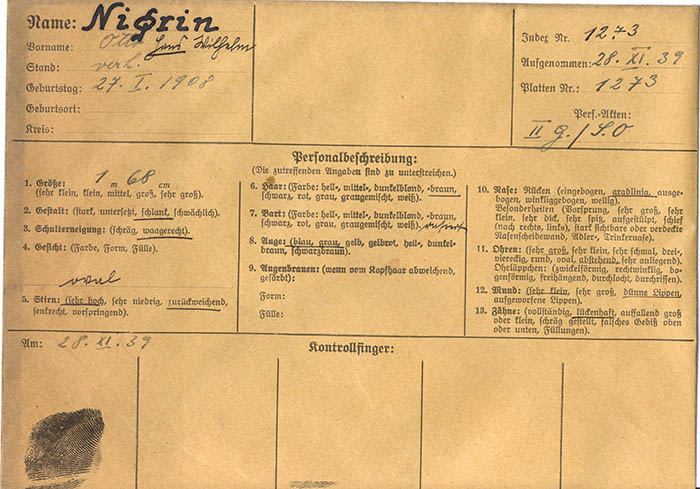 Name: Nigrin
Vorname: Otto Hans Wilhelm
Stand: verh.
Geburtstag: 27. I. 1908
Geburtsort:
Kreis:
Index Nr. 1273
Aufgenommen: 28. XI. 39
Platten Nr.: 1273
Pers.-Akten:
II g./S.O
Personalbeschreibung:
(Die zutreffenden Angaben sind zu unterstreichen.)
1. Größe: 1 m 68 cm
(sehr klein, klein, mittel, groß, sehr groß).
2. Gestalt: (stark, untersetzt, schlank, schwächlich).
3. Schulterneigung: (schräg, waagerecht).
4. Gesicht: (Farbe, Form, Fülle).
oval
5. Stirn: (sehr hoch, sehr niedrig, zurückweichend,
senkrecht, vorspringend).
6. Haar: (Farbe: hell-, mittel-, dunkelblond, -braun,
schwarz, rot, grau, graugemischt, weiß).
7. Bart: (Farbe: hell-, mittel-, dunkelblond, -braun,
schwarz, rot, grau, graugemischt, weiß).
8. Auge: (blau, grau, gelb, gelbrot, hell-, dunkel-
braun, schwarzbraun).
9. Augenbrauen: (wenn vom Kopfhaar abweichend,
gefärbt):
Form:
Fülle:
10. Nase: Rücken (eingebogen, gradlinig, ausge-
bogen, winkliggebogen, wellig).
Besonderheiten (Vorsprung, sehr groß, sehr
klein, sehr dick, sehr spitz, aufgestülpt, schief
(nach rechts, links), stark sichtbare oder verdeckte
Nasenscheidewand, Adler-, Trinkernase).
11. Ohren: (sehr groß, sehr klein, sehr schmal, drei-,
viereckig, rund, oval, abstehend, sehr anliegend).
Ohrläppchen: (zwickelförmig, rechtwinklig, bo-
genförmig, freihängend, durchlocht, durchrissen).
12. Mund: (sehr klein, sehr groß, dünne Lippen,
aufgeworsene Lippen).
13. Zähne: (vollständig, lückenhaft, auffallend groß
oder klein, schräg gestellt, falsches Gebiß oben
oder unten, Füllungen).
Am: 28. XI. 39
Kontrollfinger: